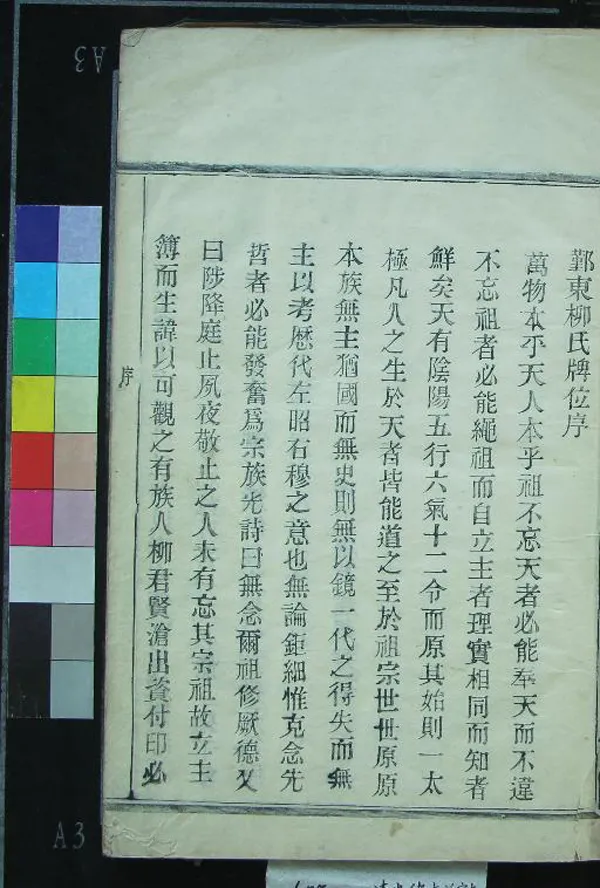 鄞東柳氏牌位序
萬物本乎天人本乎祖不忘天者必能奉天而不違
不忘祖者必能繩祖而自立主者理實相同而知者
鮮矣天有陰陽五行六氣十二令而原其始則一太
極凡人之生於天者皆能道之至於祖宗世世原原
本族無主猶國而無史則無以鏡一代之得失而無
主以考歷代左昭右穆之意也無論鉅細惟克念先
哲者必能發奮爲宗族光詩曰無念爾祖修厥德又
曰陟降庭止夙夜敬止之人未有忘其宗祖故立主
簿而生諱以可觀之有族人柳君賢滄出資付印必
序
A3
A3